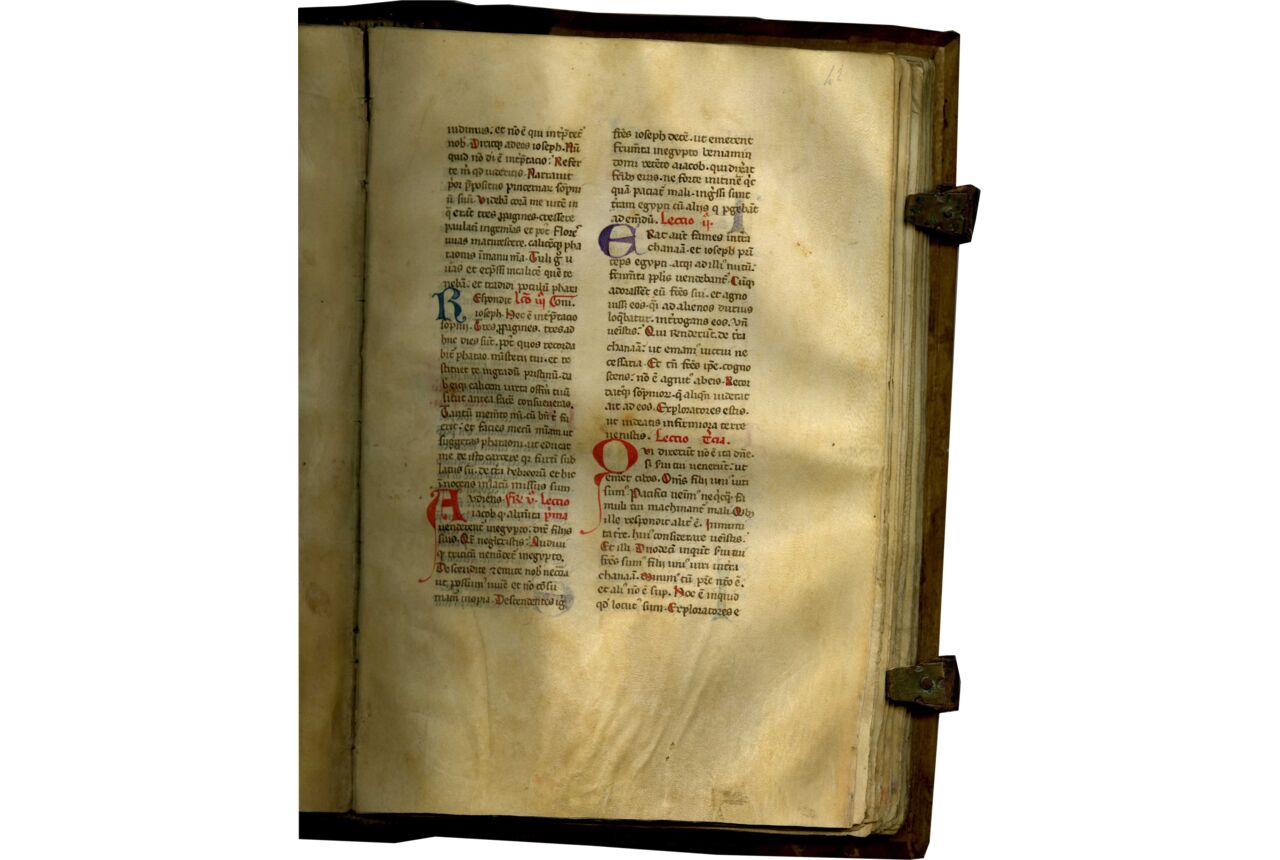 uidimus. et nō ē qui int̄p̄tet᷑
nob̄. Dixitq̨ ad eos ioseph. Nū
quid nō dī ē int̄p̄tacio? Refer
te m̄ qd̄ uideritis. Narrauit
p̄or p̄positus pincernar̨ sōpni
ū suū. Videbā corā me uitē in
q̄ erāt tres ꝓpagines. crescere
paulati in gemmas et pot̄ flores
uuas maturescere. calicēq̨ pha
raonis ī manu m̄a. Tuli ḡ u
uas et exp̄ssi in calicē quē te
nebā. et tradidi poculū phar̄
Respondit Lc̄o iii Comi.
ioseph. Hec ē int̄p̄tacio
sopnij. Tres ꝓpagines. tres ad
huc dies sūt. pot̄ quos recorda
bit᷑ pharao. mīsterii tui. et re
stituet te in gradū pristinū. da
bisq̨ calicem iuxta offm̄ tuū
sicut antea facē consueueras.
Tantū memēto m̄i. cū bn̄ t᷑ fu
erit. et facies mecū mīam ut
suggeras pharaoni. ut educat
me de isto carcere qr̄ furti sub
latus sū. de t̄ra hebreorū et hic
inocens in lacū missus sum.
Audiens. Fr̄. v̄. Lectio
iacob q̨ alim̄ta p̄ma
uenderent᷑ in egypto. dix̄ filijs
suis. Qr̄e negligitis? Audiui
q̨ triticū uenūdet᷑ in egypto.
Descendite et emite nob̄ nec̄ria
ut possimus uiuē et nō cōsu
mam᷑ inopia. Descendentes ig̃
fr̄es ioseph decē. ut emerent
frum̄ta in egypto beniamin
domi retēto a iacob. qui dix̄at
fr̄ib̨ eius. ne forte in itinē qc̄
quā paciat᷑ mali. ingr̄ssi sunt
t̄ram egypti cū alijs q̨ p̄gebāt
ad emēdū. Lectio ii.
Erat aut̄ fames in t̄ra
chanaā. et ioseph prin
ceps egypti. atq̨ ad illi᷒ nutū.
frum̄ta pp̄lis uendebant᷑. Cūq̨
adorassēt eū fr̄es sui. et agno
uissꝫ eos. q̄i ad alienos durius
loq̄bat᷑. int̄rogans eos. Vn̄
uēistis? Qui r̄nderūt. de t̄ra
chanaā. ut emam᷒ uictui ne
cessaria. Et tn̄ fr̄es ip̄e cogno
scens. nō ē agnit᷒ ab eis. Recor
datq̨ sōpnior̨ q̄ aliqn̄ uiderat
ait ad eos. Exploratores estis.
ut uideatis infirmiora terre
uenistis. Lectio T̄cia.
Qui dixerūt nō ē ita dn̄e.
Sꝫ s̄ui tui uenerūt. ut
emēt cibos. Om̄s filij uni᷒ uiri
sum᷒. Pacifici ueim᷒ neq̨ q̄c̨ fa
muli tui machinant᷑ mali. Qib̨
ille respondit. alit᷑ ē. Inmuni
ta t̄re. hui᷒ considerare uēistis.
Et illi. Duodecī inquit s̄ui tui
fr̄es sum᷒ filij uni᷒ uiri in t̄ra
chanaā. minim᷒ cū p̄re nr̄o ē.
et ali᷒ nō ē sup̄. Hoc ē inquid
qd̄ locut᷒ sum. Exploratores e